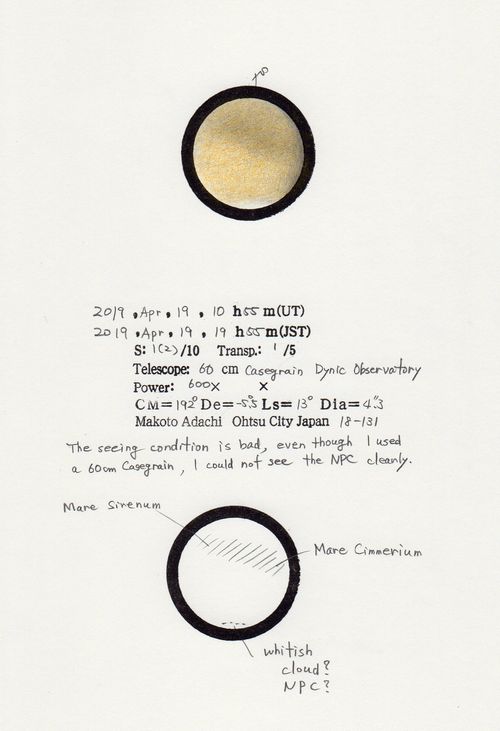 2019 , Apr , 19 , 10 h55 m(UT)
2019 , Apr , 19 , 19 h55 m(JST)
S: 1(2) /10 Transp.: 1 /5
Telescope: 60 cm Casegrain Dynic Observatory
Power: 600× ×
CM=192° De=-5.°5 Ls= 13° Dia= 4."3
Makoto Adachi Ohtsu City Japan 18-131
The seeing condition is bad, even though I used
a 60cm Casegrain, I could not see the NPC cleanly.
Mare Sirenum
Mare Cimmerium
whitish
cloud?
NPC?